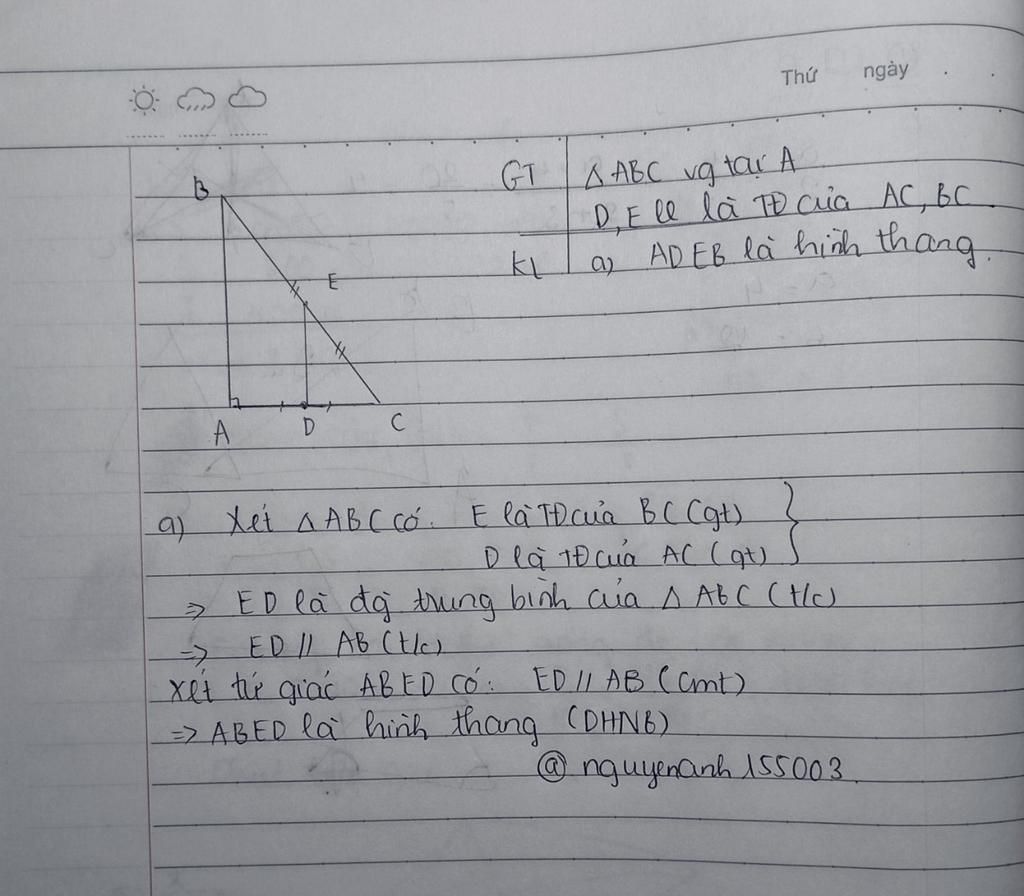 Thứ ngày
GT △ABC vg tại A
D, E ll là TĐ của AC, BC
KL a) ADEB là hình thang.
B
E
A D C
a) Xét △ABC có: E là TĐ của BC (gt)
D là TĐ của AC (gt)
=> ED là đg trung bình của △ABC (t/c)
=> ED // AB (t/c)
Xét tứ giác ABED có: ED // AB (cmt)
=> ABED là hình thang (DHNB)
@ nguyenanh155003.